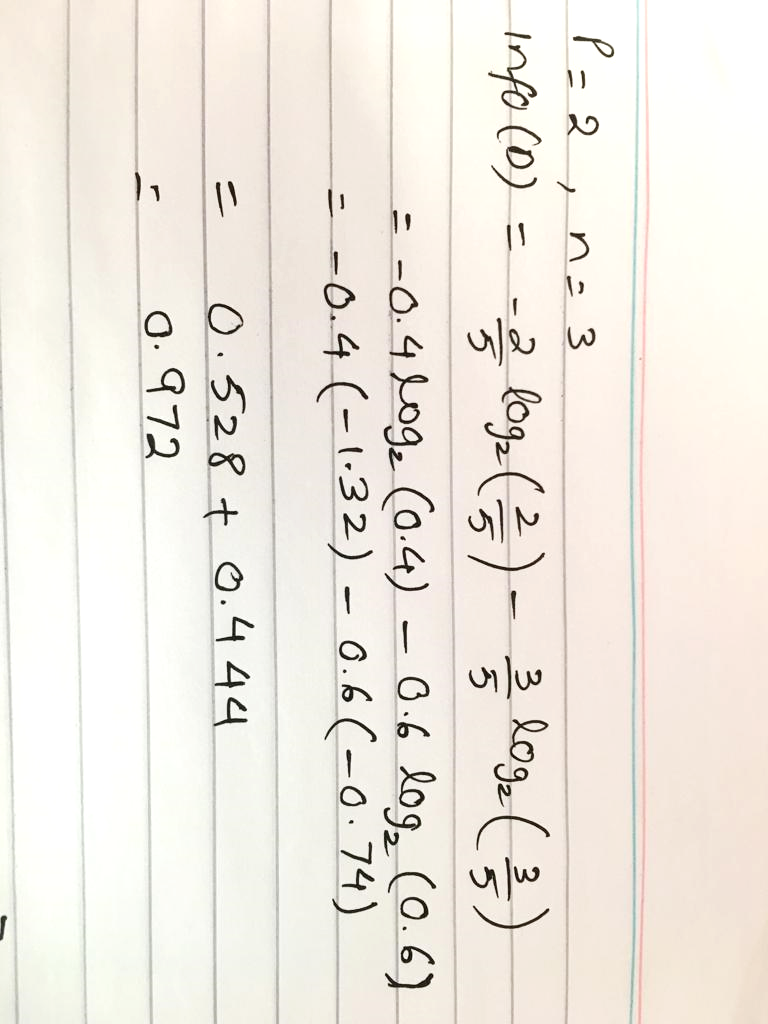 P = 2, n = 3
Info (D) = -2/5 log₂(2/5) - 3/5 log₂(3/5)
= -0.4 log₂(0.4) - 0.6 log₂(0.6)
= -0.4(-1.32) - 0.6(-0.74)
= 0.528 + 0.444
= 0.972